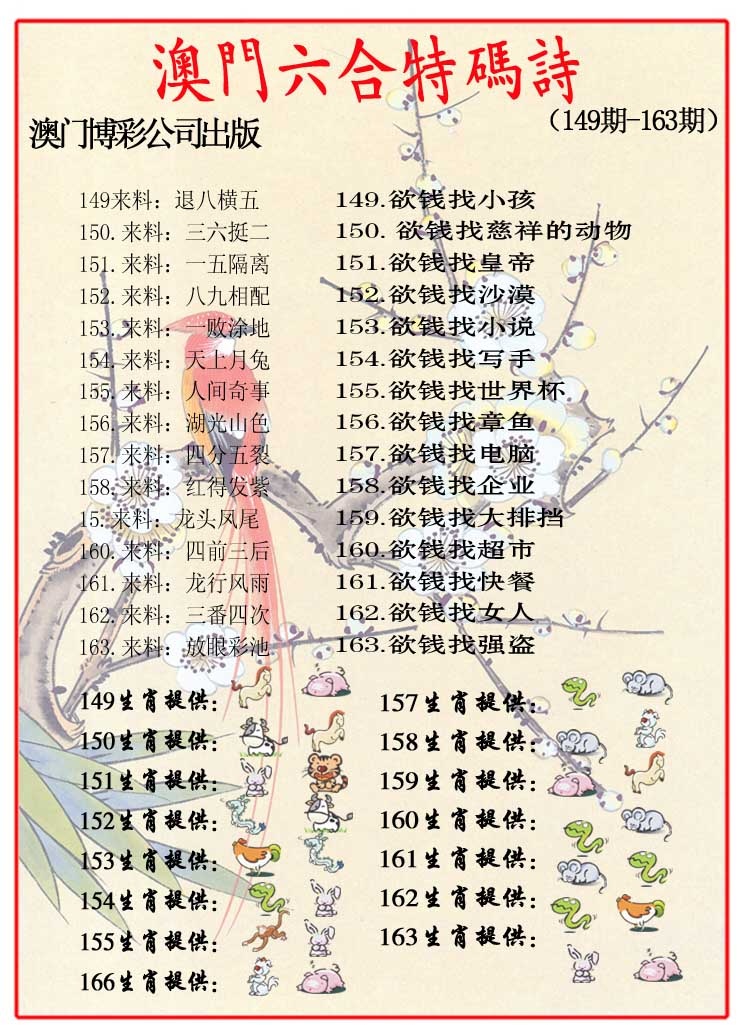 澳門六合特碼詩
澳门博彩公司出版
（149期-163期）
149来料：退八横五 149.欲钱找小孩
150.来料：三六挺二 150. 欲钱找慈祥的动物
151.来料：一五隔离 151.欲钱找皇帝
152.来料：八九相配 152.欲钱找沙漠
153.来料：一败涂地 153.欲钱找小说
154.来料：天上月兔 154.欲钱找写手
155.来料：人间奇事 155.欲钱找世界杯
156.来料：湖光山色 156.欲钱找章鱼
157.来料：四分五裂 157.欲钱找电脑
158.来料：红得发紫 158.欲钱找企业
15.来料：龙头凤尾 159.欲钱找大排挡
160.来料：四前三后 160.欲钱找超市
161.来料：龙行风雨 161.欲钱找快餐
162.来料：三番四次 162.欲钱找女人
163.来料：放眼彩池 163.欲钱找强盗
149生肖提供：
150生肖提供：
151生肖提供：
152生肖提供：
153生肖提供：
154生肖提供：
155生肖提供：
166生肖提供：
157生肖提供：
158生肖提供：
159生肖提供：
160生肖提供：
161生肖提供：
162生肖提供：
163生肖提供：